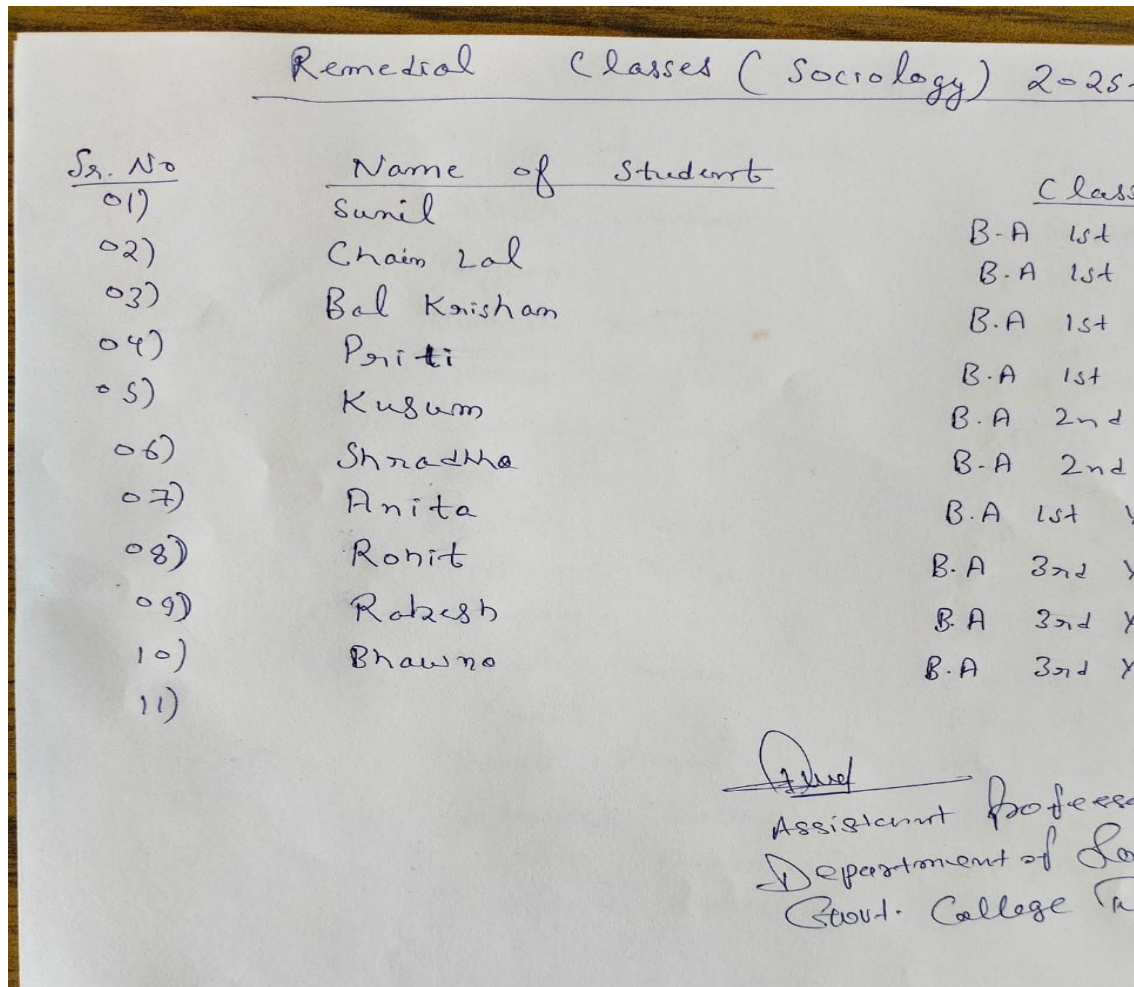 Remedial Classes (Sociology) 2025-
Sr. No Name of Student Class
01) Sunil B-A 1st
02) Chain Lal B.A 1st
03) Bal Krishan B.A 1st
04) Priti B.A 1st
05) Kusum B.A 2nd
06) Shradha B.A 2nd
07) Anita B.A 1st Y
08) Rohit B.A 3rd Y
09) Rakesh B.A 3rd Y
10) Bhawna B.A 3rd Y
11)
Assistant Professo
Department of So
Govt. College